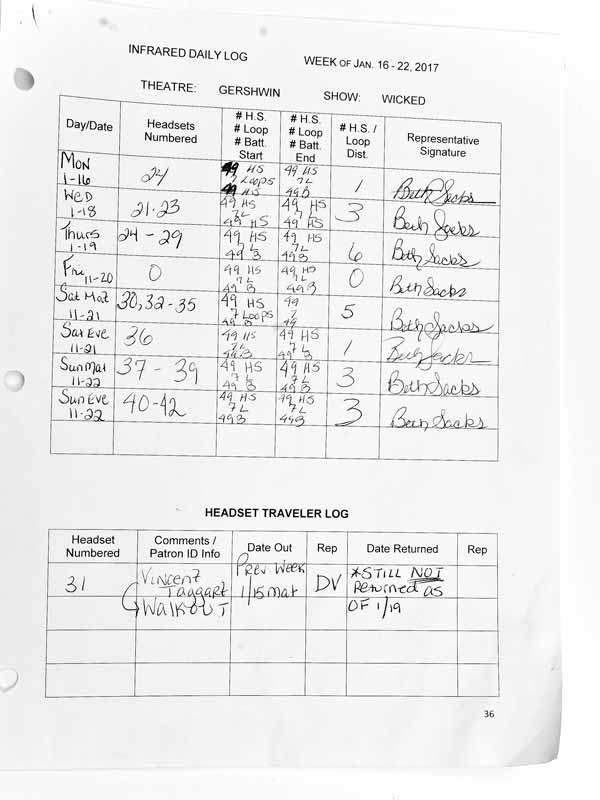 INFRARED DAILY LOG WEEK OF JAN. 16 - 22, 2017
THEATRE: GERSHWIN SHOW: WICKED
Day/Date Headsets Numbered # H.S. # Loop # Batt. Start # H.S. # Loop # Batt. End # H.S. / Loop Dist. Representative Signature
MON 1-16 24 49 HS 7 Loops 49 HS 49 HS 7 L 49 B 1 Beth Sacks
WED 1-18 21-23 49 HS 7L 49 HS 49 HS 7 L 49 HS 3 Beth Sacks
Thurs 1-19 24 - 29 49 HS 7 L 49 B 49 HS 7 L 49 B 6 Beth Sacks
Fri 11-20 0 49 HS 7 L 49 B 49 HS 7 L 49 B 0 Beth Sacks
Sat Mat 11-21 30, 32-35 49 HS 7 Loops 49 B 49 7 49 5 Beth Sacks
Sat Eve 11-21 36 49 HS 7L 49 B 49 HS 7 L 49 B 1 Beth Sacks
Sun Mat 11-22 37 - 39 49 HS 7 L 49 B 49 HS 7L 49 B 3 Beth Sacks
Sun Eve 11-22 40-42 49 HS 7 L 49B 49 HS 7 L 49B 3 Beth Sacks
HEADSET TRAVELER LOG
Headset Numbered Comments / Patron ID Info Date Out Rep Date Returned Rep
31 Vincent Taggart WALKOUT PREV WEEK 1/15 mat DV *STILL NOT Returned AS OF 1/19
36